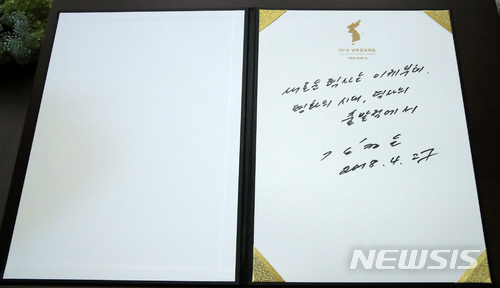 2018 남북정상회담
새로운 력사는 이제부터.
평화의 시대, 력사의
출발점에서
김정은
2018. 4. 27
NEWSIS